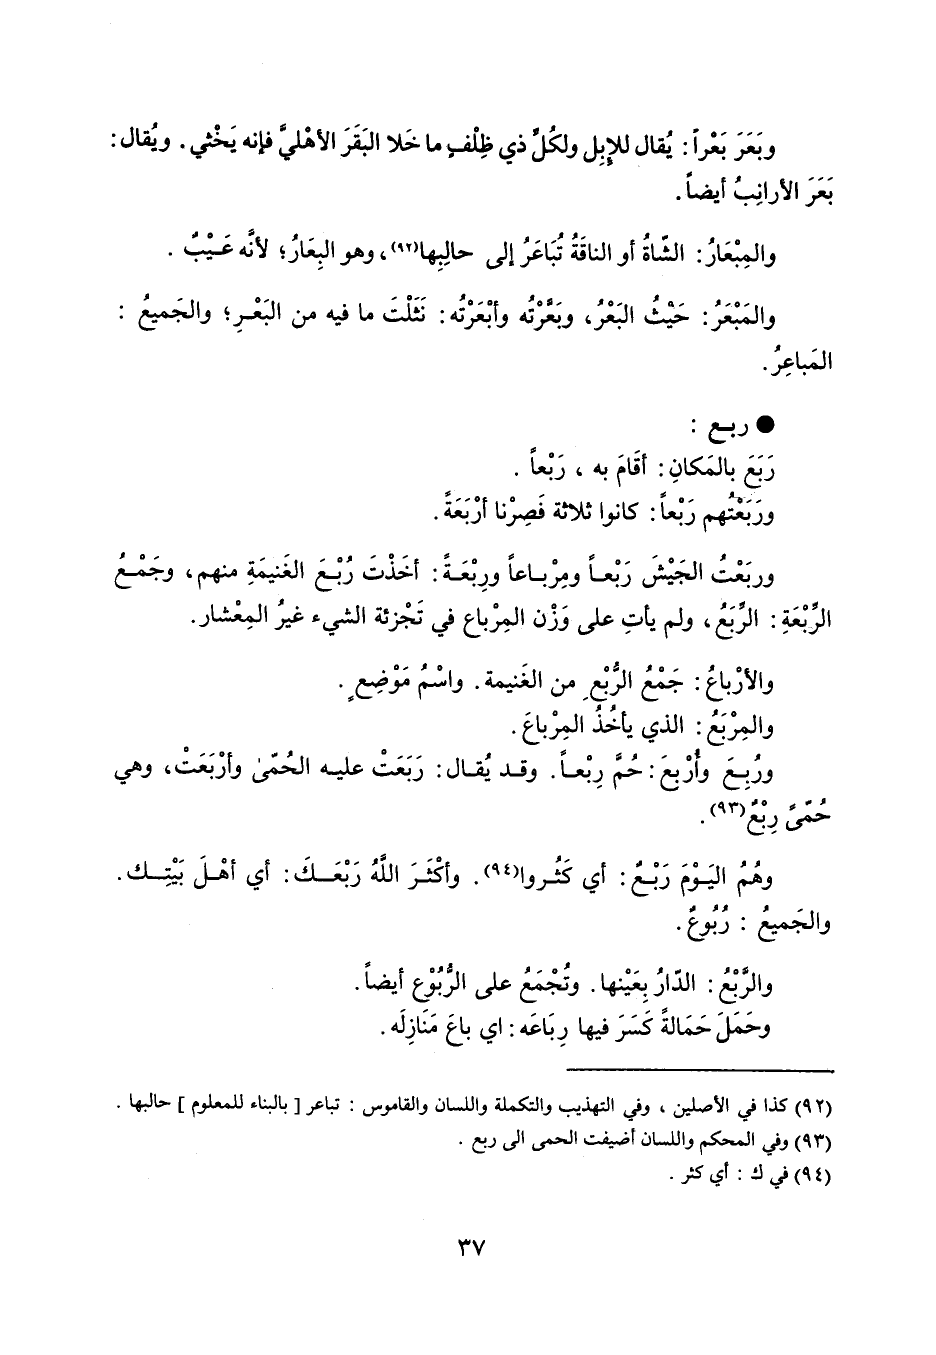 وبَعَرَ بَعْراً: يُقال للإِبِل ولكُلِّ ذي ظِلْفٍ ما خَلا البَقَرَ الأهْليَّ فإنه يَخْثي. ويُقال:
بَعَرَ الأرانِبُ أيضاً.
والمِبْعَارُ: الشّاةُ أو الناقَةُ تُبَاعَرُ إلى حالِبِها(٩٢)، وهو البِعَارُ؛ لأنَّه عَـيْبٌ .
والمَبْعَرُ: حَيْثُ البَعْرُ، وبَعَّرْتُه وأبْعَرْتُه: نَثَلْتَ ما فيه من البَعْـرِ؛ والجَميعُ :
المَباعِرُ.
● ربـع :
رَبَعَ بالمَكانِ: أقَامَ به ، رَبْعاً .
ورَبَعْتُهم رَبْعاً: كانوا ثلاثة فَصِرْنا أرْبَعَةً.
وربَعْتُ الجَيْشَ رَبْعـاً ومِرْبـاعاً ورِبْعَـةً: أخَذْتَ رُبْـعَ الغَنيمَةِ منهم، وجَمْـعُ
الرِّبْعَةِ: الرِّبَعُ، ولم يأتِ على وَزْن المِرْباع في تَجْزئة الشيء غيرُ المِعْشار.
والأرْباعُ: جَمْعُ الرُّبْعِ من الغَنيمة. واسْمُ مَوْضِعٍ.
والمِرْبَعُ: الذي يأخُذُ المِرْباعَ.
ورُبِـعَ وأُرْبعَ: حُمَّ رِبْعـاً. وقـد يُقـال: رَبَعَتْ عليـه الحُمّىٰ وأرْبَعَتْ، وهي
حُمّىً رِبْعٌ(٩٣).
وهُمُ اليَـوْمَ رَبْـعٌ: أي كَثُـروا(٩٤). وأكْثَـرَ اللَّهُ رَبْعَـكَ: أي أهْـلَ بَيْتِـك.
والجَميعُ : رُبُوعٌ.
والرَّبْعُ: الدّارُ بِعَيْنها. وتُجْمَعُ على الرُّبُوْع أيضاً.
وحَمَلَ حَمَالةً كَسَرَ فيها رِبَاعَه: اي باعَ مَنَازِلَه.
(٩٢) كذا في الأصلين ، وفي التهذيب والتكملة واللسان والقاموس : تباعر [ بالبناء للمعلوم ] حالبها .
(٩٣) وفي المحكم واللسان أضيفت الحمى الى ربع .
(٩٤) في ك : أي كثر .
٣٧